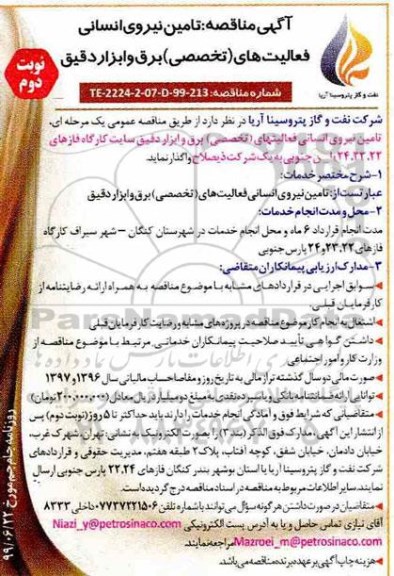 آگهی مناقصه: تامین نیروی انسانی
فعالیت‌های (تخصصی) برق و ابزار دقیق
نوبت
دوم
نفت و گاز پتروسینا آریا
شماره مناقصه: TE-2224-2-07-D-99-213
شرکت نفت و گاز پتروسینا آریا در نظر دارد از طریق مناقصه عمومی یک مرحله ای،
تامین نیروی انسانی فعالیتهای (تخصصی) برق و ابزار دقیق سایت کارگاه فازهای
۲۲،۲۳،۲۴ جنوبی به یک شرکت ذیصلاح واگذار نماید.
۱-شرح مختصر خدمات:
عبارتست از: تامین نیروی انسانی فعالیت‌های (تخصصی) برق و ابزار دقیق
۲-محل و مدت انجام خدمات:
مدت انجام قرارداد ۶ ماه و محل انجام خدمات در شهرستان کنگان – شهر سیراف کارگاه
فازهای ۲۲،۲۳ و ۲۴ پارس جنوبی
۳-مدارک ارزیابی پیمانکاران متقاضی:
سوابق اجرایی در قراردادهای مشابه با موضوع مناقصه به همراه ارائه رضایتنامه از
کارفرمایان قبلی.
اشتغال به انجام کار موضوع مناقصه در پروژه‌های مشابه و رضایت کارفرمایان قبلی.
داشتن گواهی تأیید صلاحیت پیمانکاران خدماتی، مرتبط با موضوع مناقصه از
وزارت کار و امور اجتماعی.
صورت مالی دو سال گذشته تراز مالی به تاریخ روز و مفاصاحساب مالیاتی سال ۱۳۹۶ و ۱۳۹۷
ضمانتنامه بانکی و سپرده نقدی به مبلغ دو میلیارد ریال معادل (۲۰۰،۰۰۰،۰۰۰ تومان)
متقاضیانی که شرایط فوق و آمادگی انجام خدمات را دارند باید حداکثر تا ۵ روز (نوبت دوم) پس
از انتشار این آگهی، مدارک فوق الذکر (بند ۳) را بصورت الکترونیک به نشانی: تهران، شهرک غرب،
خیابان دادمان، خیابان شفق، کوچه آفتاب، پلاک ۲ طبقه هفتم، مدیریت حقوقی و قراردادهای
شرکت نفت و گاز پتروسینا آریا یا استان بوشهر بندر کنگان فازهای ۲۲،۲۴ پارس جنوبی ارسال
نمایند. سایر اطلاعات مربوط به مناقصه در اسناد مناقصه درج گردیده است.
متقاضیان در صورت داشتن هر گونه سؤال می‌توانند با شماره تلفن ۰۷۷۳۷۲۲۱۵۰۶ داخلی ۸۳۳۳
آقای نیازی تماس حاصل و یا به آدرس پست الکترونیکی Niazi_y@petrosinaco.com
Mazroei_m@petrosinaco.com مراجعه نمایند.
هزینه چاپ آگهی بر عهده برنده مناقصه می‌باشد.
روزنامه جام جم مورخ ۹۹/۰۶/۲۲
ParsNamadData